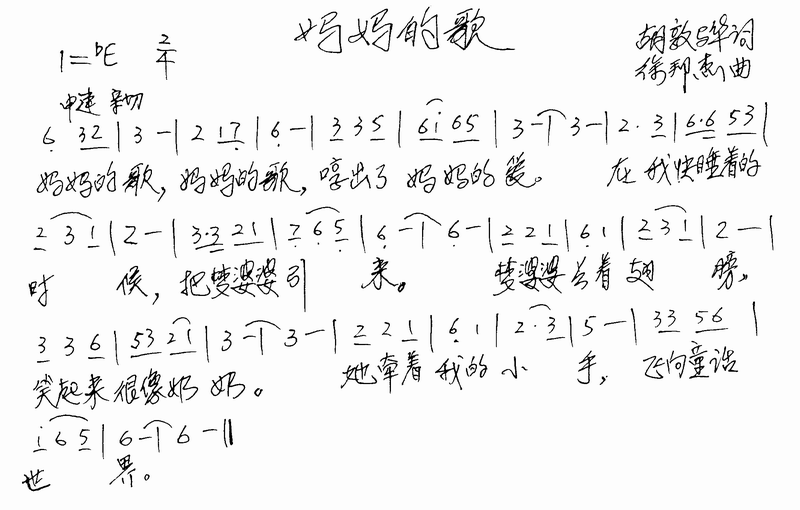 妈妈的歌
1=♭E 2/4
胡敦骅词
徐邦杰曲
中速 亲切
6 32 | 3 - | 2 17 | 6 - | 3 3 5 | 6i 65 | 3 - | 3 - | 2. 3 | 6.6 53 |
妈妈的歌，妈妈的歌，哼出了妈妈的爱。 在我快睡着的
2 3 1 | 2 - | 3.3 21 | 7 6 5 | 6 - | 6 - | 2 2 1 | 6 1 | 2 3 1 | 2 - |
时 候，把梦婆婆引 来。 梦婆婆长着翅 膀，
3 3 6 | 53 21 | 3 - | 3 - | 2 2 1 | 6 1 | 2. 3 | 5 - | 33 56 |
笑起来很像奶奶。 她牵着我的小 手，飞向童话
i 6 5 | 6 - | 6 - ‖
世 界。